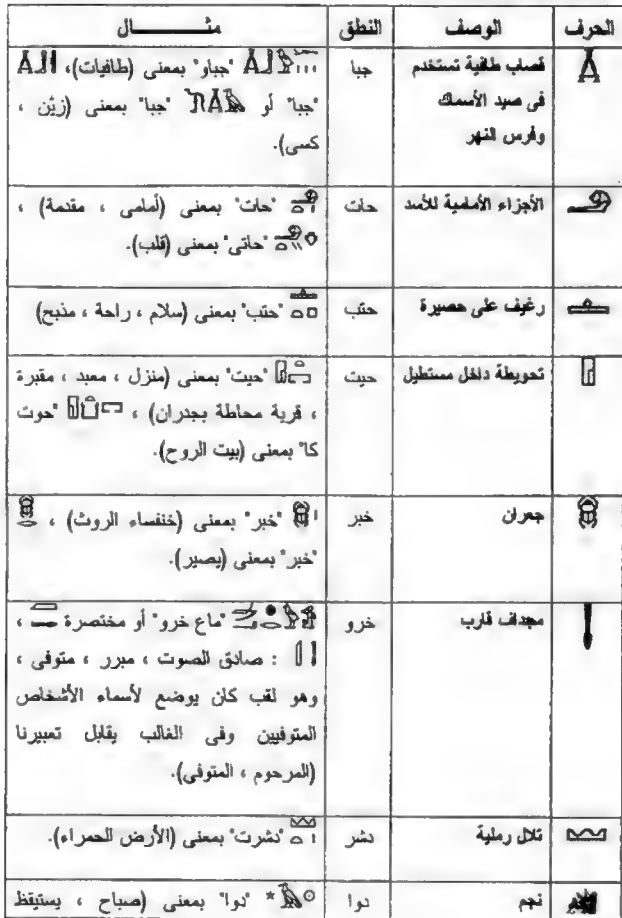 الحرف الوصف النطق مثـــــــال
قصاب طافية تستخدم جبا "جباو" بمعنى (طافيات)،
فى صيد الأسماك "جبا" أو "جبا" بمعنى (زين ،
وفرس النهر كسى).
الأجزاء الأمامية للأسد حات "حات" بمعنى (أمامى ، مقدمة) ،
"حاتى" بمعنى (قلب).
رغيف على حصيرة حتب "حتب" بمعنى (سلام ، راحة ، مذبح)
تحويطة داخل مستطيل حيت "حيت" بمعنى (منزل ، معبد ، مقبرة
، قرية محاطة بجدران) ، "حوت
كا" بمعنى (بيت الروح).
جعران خبر "خبر" بمعنى (خنفساء الروث) ،
"خبر" بمعنى (يصير).
مجداف قارب خرو "ماع خرو" أو مختصرة ،
: صادق الصوت ، مبرر ، متوفى ،
وهو لقب كان يوضع لأسماء الأشخاص
المتوفيين وفى الغالب يقابل تعبيرنا
(المرحوم ، المتوفى).
تلال رملية دشر "دشرت" بمعنى (الأرض الحمراء).
نجم دوا "دوا" بمعنى (صباح ، يستيقظ